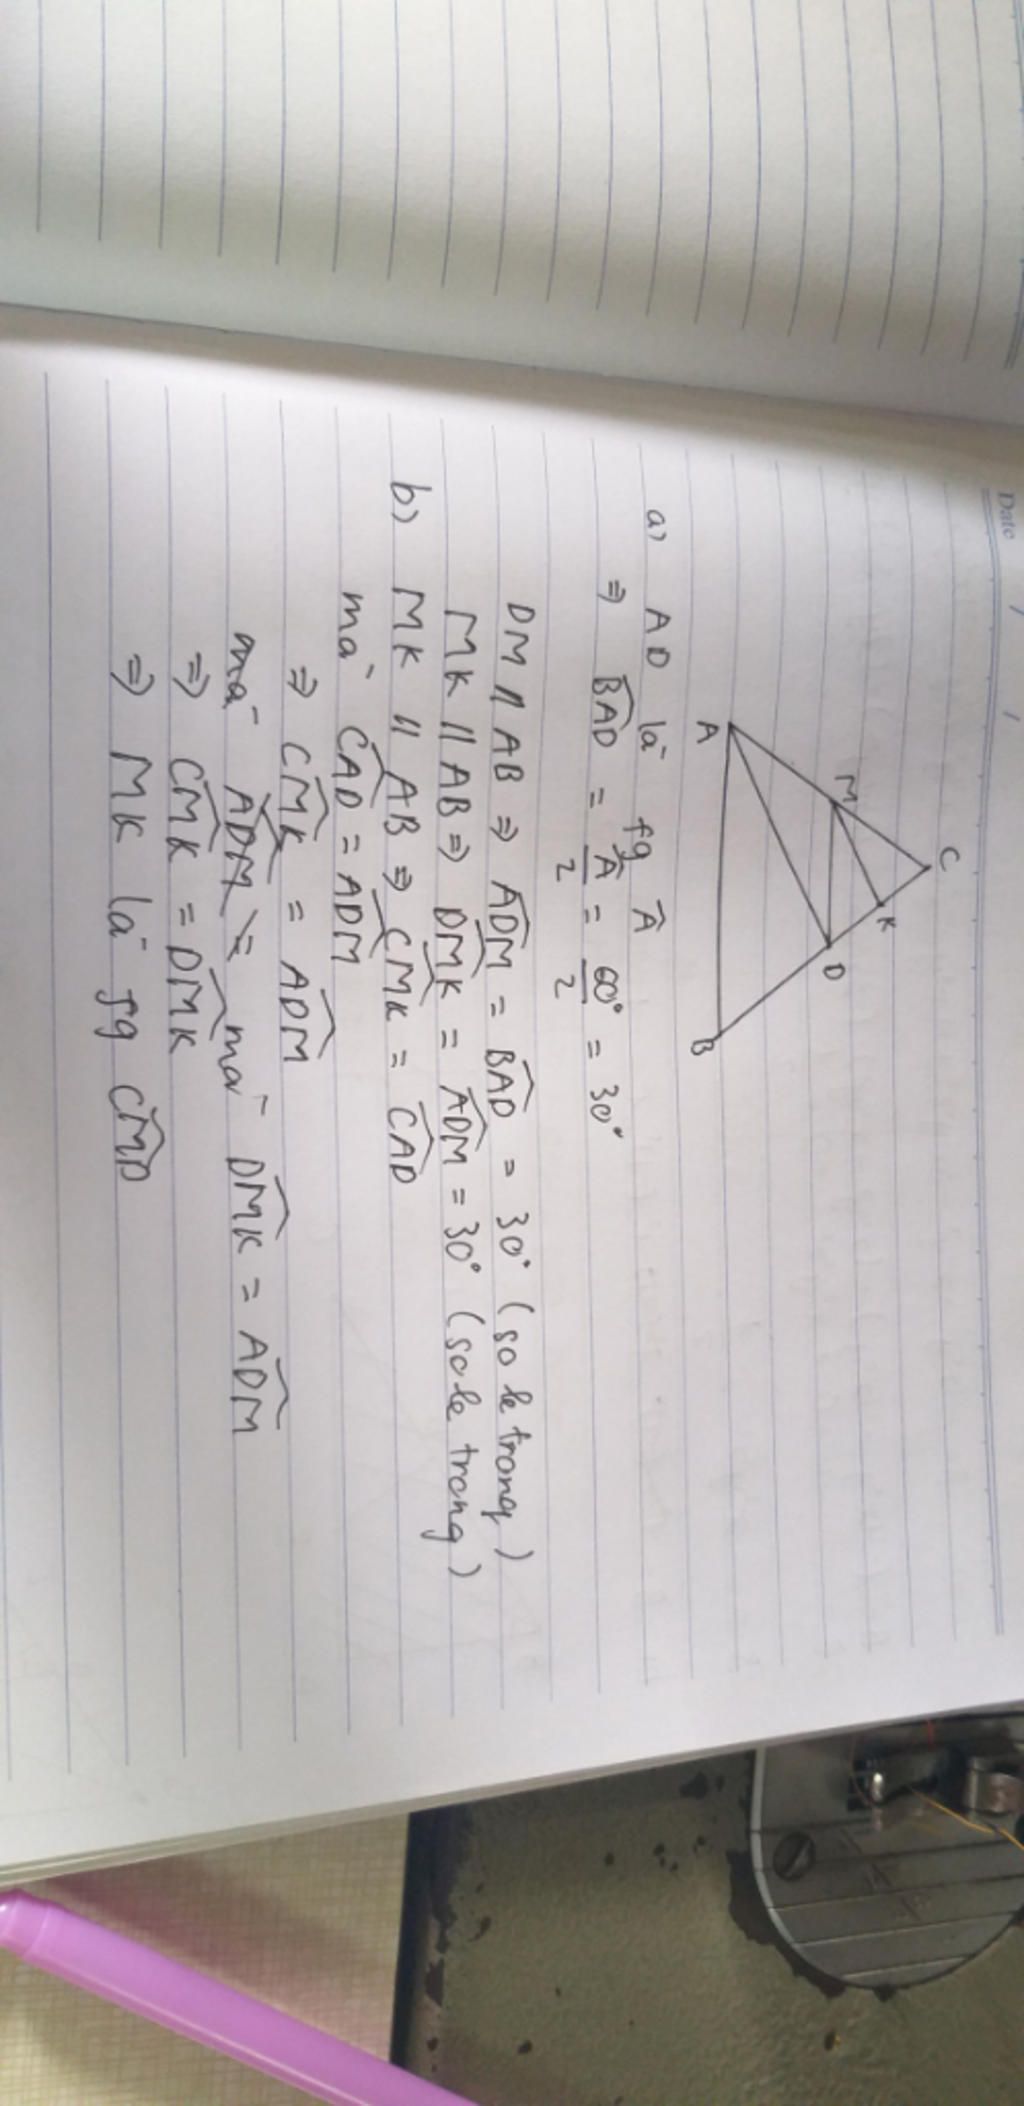 Date / /
C
M
K
D
A
B
a) AD là fg Â
⇒ B̂AD = Â/2 = 60°/2 = 30°
DM // AB ⇒ ÂDM = B̂AD = 30° (so le trong)
MK // AB ⇒ D̂MK = ÂDM = 30° (so le trong)
b) MK // AB ⇒ ĈMK = ĈAD
mà ĈAD = ÂDM
⇒ ĈMK = ÂDM
mà D̂MK = ÂDM
⇒ ĈMK = D̂MK
⇒ MK là fg ĈMD